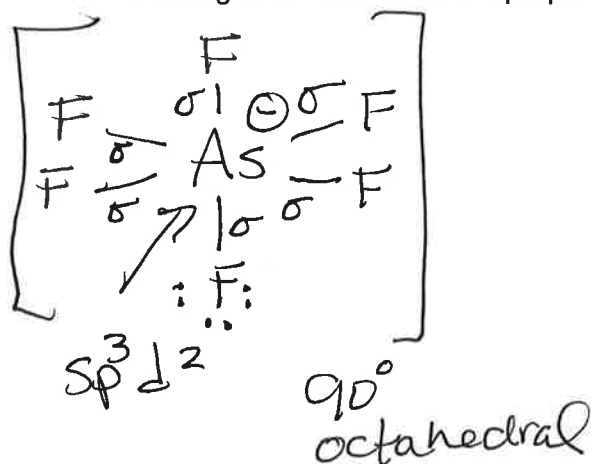 F
σ ⊖ σ
F As F
σ
F F
σ σ σ
:F:
..
sp³d²
90°
octahedral